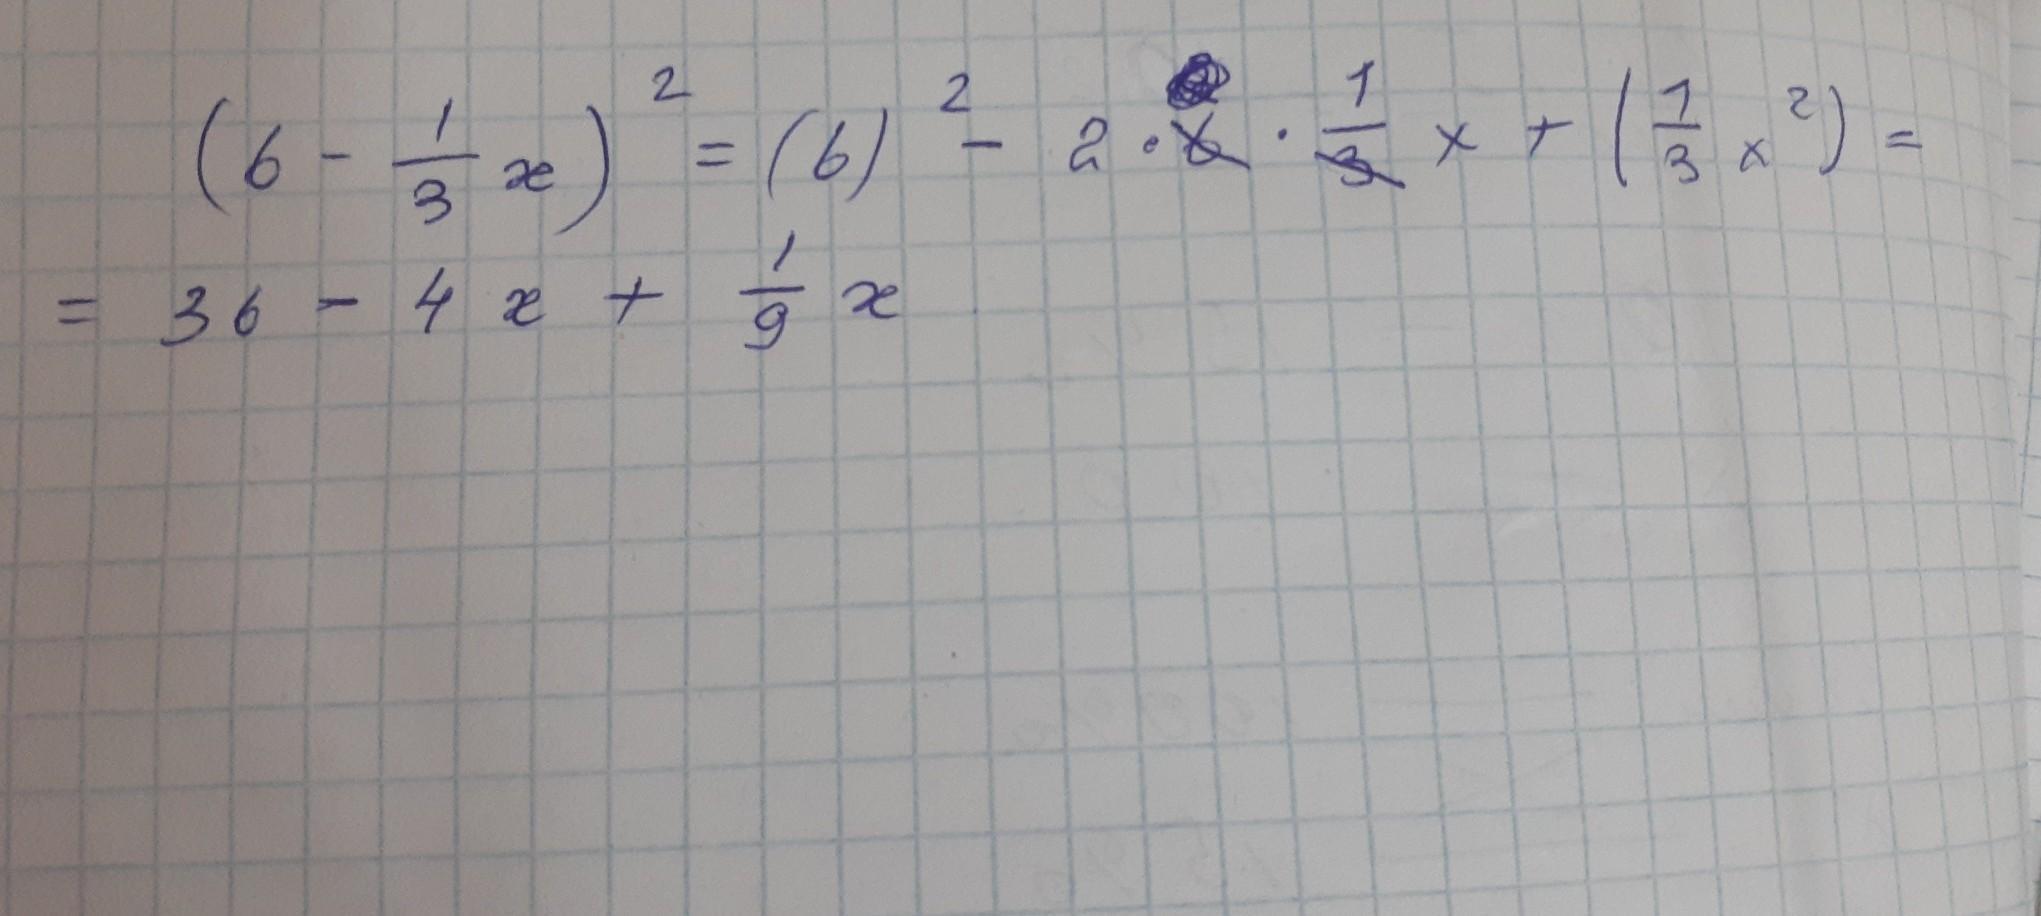 (6 - 1/3 x)² = (6)² - 2 · 6 · 1/3 x + (1/3 x²) =
= 36 - 4x + 1/9 x